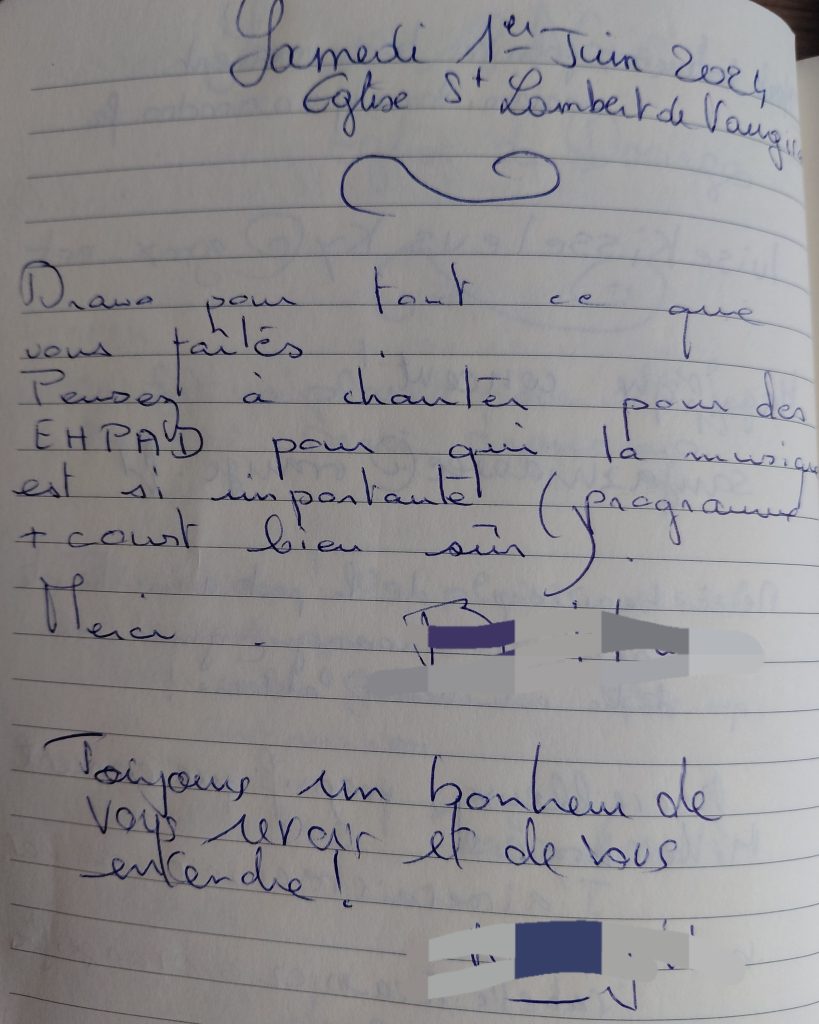 Samedi 1er Juin 2024
Eglise St Lambert de Vaugir
Bravo pour tout ce que
vous faîtes.
Pensez à chanter pour des
EHPAD pour qui la musique
est si importante (programme
+ court bien sûr).
Merci.
Toujours un bonheur de
vous revoir et de vous
entendre!